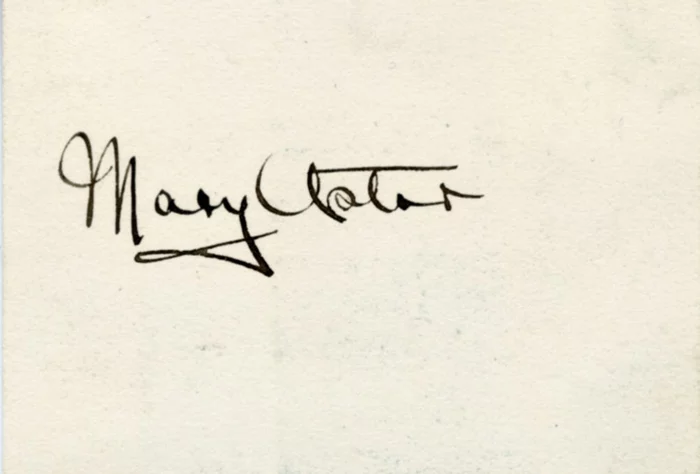 Mary Astor